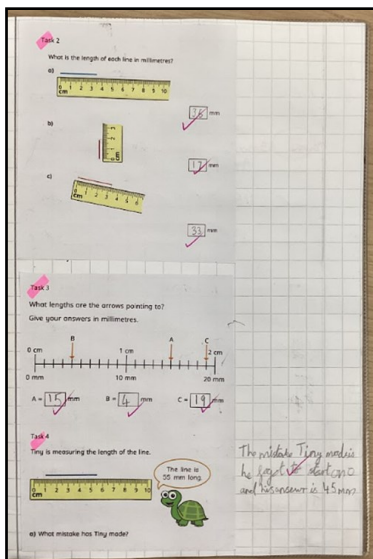 Task 2
What is the length of each line in millimetres?
a)
0 1 2 3 4 5 6 7 8 9 10
cm
mm
b)
0 1 2 3
cm
17 mm
c)
0 1 2 3 4 5 6
cm
33 mm
Task 3
What lengths are the arrows pointing to?
Give your answers in millimetres.
B A C
0 cm 1 cm 2 cm
0 mm 10 mm 20 mm
A = 15 mm B = 4 mm C = 19 mm
Task 4
Tiny is measuring the length of the line.
The line is
55 mm long.
1 2 3 4 5 6 7 8 9 10
a) What mistake has Tiny made?
The mistake Tiny made is
he forgot to start on 0
and his answer is 45mm